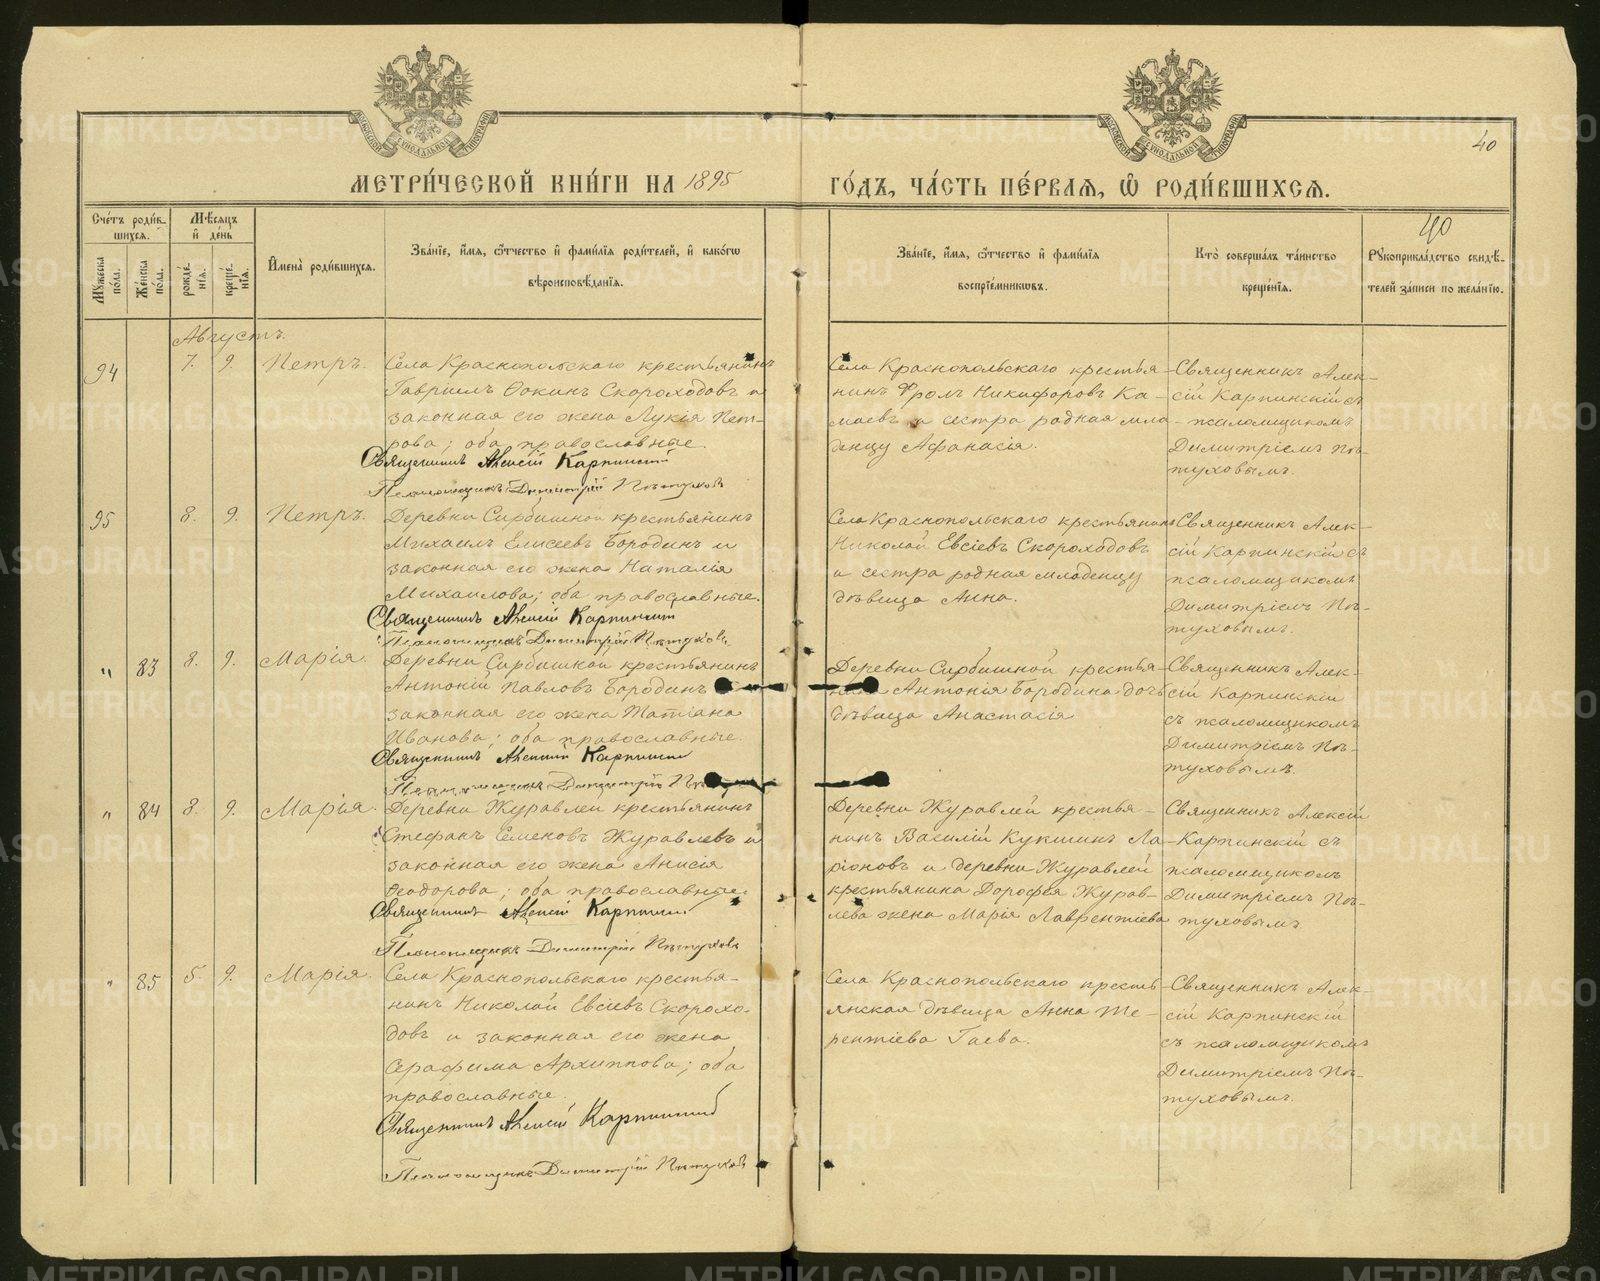 40
МЕТРИ́ЧЕСКОЙ КНИ́ГИ НА 1895
ГО́ДЪ, ЧА́СТЬ ПЕ́РВАЯ, Ѡ҆ РОДИ́ВШИХСЯ.
40
Сче́тъ роди́в-
шихся.
Мѣ́сяцъ
и҆ де́нь
Мꙋ́жеска по́ла.
Же́нска по́ла.
рожде́нїя.
креще́нїя.
И҆мена̀ роди́вшихся.
Зва́нїе, и҆́мя, ѻ҆́тчество и҆ фами́лїя роди́телей, и҆ како́гѡ
вѣроисповѣ́данїя.
Зва́нїе, и҆́мя, ѻ҆́тчество и҆ фами́лїя
воспрїе́мникѡвъ.
Кто̀ соверша́лъ та́инство
креще́нїя.
Рꙋкоприкла́дство свидѣ́-
телей за́писи по жела́нїю.
Августъ.
94 7. 9. Петръ.
Села Краснопольскаго крестьянинъ
Гавриилъ Ѳокинъ Скороходовъ и
законная его жена Лукія Пет-
рова; оба православные.
Священникъ Алексій Карпинскій
Псаломщикъ Димитрій Пѣтуховъ
Села Краснопольскаго крестья-
нинъ Фролъ Никифоровъ Ка-
маевъ и сестра родная мла-
денцу Афанасія.
Священникъ Алек-
сій Карпинскій съ
псаломщикомъ
Димитріемъ Пѣ-
туховымъ.
95 8. 9. Петръ.
Деревни Сирбишной крестьянинъ
Михаилъ Елисеевъ Бородинъ и
законная его жена Наталія
Михаилова; оба православные.
Священникъ Алексій Карпинскій
Псаломщикъ Димитрій Пѣтуховъ
Села Краснопольскаго крестьянинъ
Николай Евсіевъ Скороходовъ
и сестра родная младенцу
дѣвица Анна.
Священникъ Алек-
сій Карпинскій съ
псаломщикомъ
Димитріемъ Пѣ-
туховымъ.
" 83 8. 9. Марія.
Деревни Сирбишной крестьянинъ
Антоній Павловъ Бородинъ
законная его жена Татіана
Иванова; оба православные.
Священникъ Алексій Карпинскій
Псаломщикъ Димитрій
Деревни Сирбишной крестья-
Антонія Бородина дочь
дѣвица Анастасія
Священникъ Алек-
сій Карпинскій
съ псаломщикомъ
Димитріемъ Пѣ-
туховымъ.
" 84 8. 9. Марія.
Деревни Журавлей крестьянинъ
Стефанъ Семеновъ Журавлевъ и
законная его жена Анисія
Ѳеодорова; оба православные.
Священникъ Алексій Карпинскій
Псаломщикъ Димитрій Пѣтуховъ
Деревни Журавлей крестья-
нинъ Василій Кукшинъ Ла-
ріоновъ и деревни Журавлей
крестьянина Дорофея Журав-
лева жена Марія Лаврентіева
Священникъ Алексій
Карпинскій съ
псаломщикомъ
Димитріемъ Пѣ-
туховымъ
" 85 5. 9. Марія.
Села Краснопольскаго крестья-
нинъ Николай Евсіевъ Скорохо-
довъ и законная его жена
Серафима Архиппова; оба
православные.
Священникъ Алексій Карпинскій
Псаломщикъ Димитрій Пѣтуховъ
Села Краснопольскаго кресть-
янская дѣвица Анна Те-
рентіева Гаева.
Священникъ Алек-
сій Карпинскій
съ псаломщикомъ
Димитріемъ Пѣ-
туховымъ.
METRIKI.GASO-URAL.RU